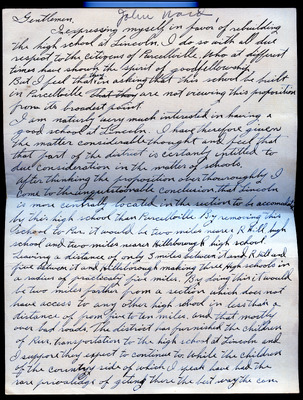 John Ward
Gentlemen,
In expressing myself in favor of rebuilding
the high school at Lincoln, I do so with all due
respect to the citizens of Purcellville who at different
times have shown the kind of good fellowship.
But I feel that in asking that this school be built
in Purcellville that they are not viewing this proposition
from its broadest point.
I am naturly very much interested in having a
good school at Lincoln. I have therefore given
the matter considerable thought and feel that
that part of the district is certainly entitled to
due consideration in the matter of schools.
After thinking the proposition over thouroughly I
come to the unquestionable conclusion that Lincoln
is more centrally located in the section to be accomodated
by this high school than Purcellville. By removing this
school to it would be two miles nearer R. Hill high
school and two miles nearer Hillsborough high school
leaving a distance of only 3 miles between it and R. Hill and
five between it and Hillsborough making three high schools in
a radius of practically five miles. By doing this it would
be two miles farther from a section which does not
have access to any other high school in less than a
distance of from five to ten miles, and that mostly
over bad roads. The district has furnished the children
of transportation to the high school at Lincoln and
I suppose they expect to continue to. While the children
of the country side of which I speak have had the
rare privaladge of geting there the best way the can.